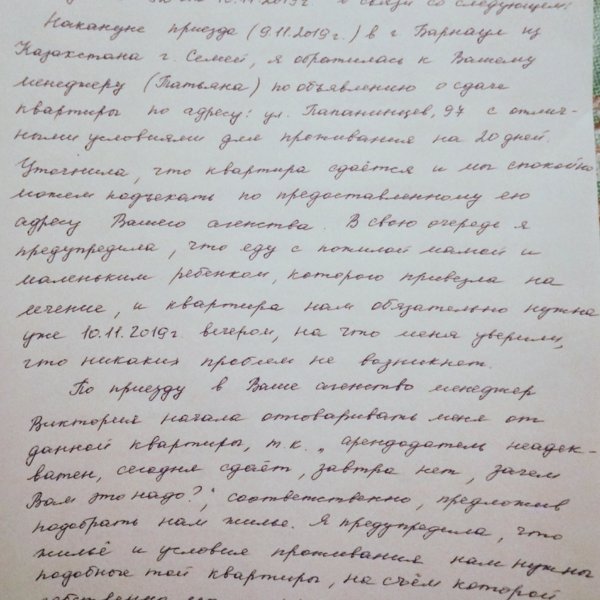 10.11.2019г в связи со следующем:
Накануне приезда (9.11.2019г.) в г. Барнаул из
Казахстана г. Семей, я обратилась к Вашему
менеджеру (Татьяна) по объявлению о сдаче
квартиры по адресу: ул. Папанинцев, 97 с отлич-
ными условиями для проживания на 20 дней.
Уточнила, что квартира сдаётся и мы спокойно
можем подъехать по предоставленному ею
адресу Вашего агенства. В свою очередь я
предупредила, что еду с пожилой мамой и
маленьким ребенком, которого привезла на
лечение, и квартира нам обязательно нужна
уже 10.11.2019г. вечером, на что меня уверили,
что никаких проблем не возникнет.
По приезду в Ваше агенство менеджер
Виктория начала отговаривать меня от
данной квартиры, т.к. „арендодатель неадек-
ватен, сегодня сдаёт, завтра нет, зачем
Вам это надо?", соответственно, предложив
подобрать нам жилье. Я предупредила, что
жильё и условия проживания нам нужны
подобные той квартиры, на счём которой